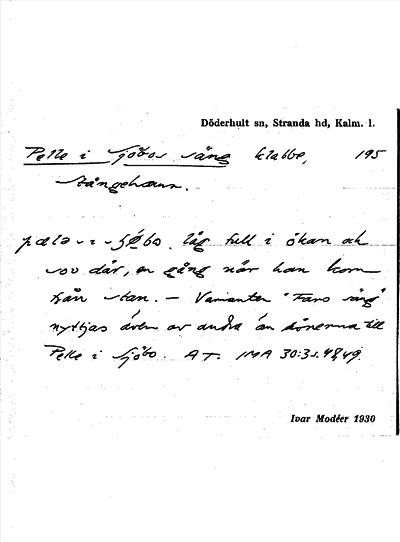 Döderhult sn, Stranda hd, Kalm. l.
Pelle i Sjöbos säng klabbe, 195
Stångehamn.
låg full i ökan och
sov där, en gång när han kom
från stan. — Varianten "Fars säng"
nyttjas även av andra än sönerna till
Pelle i Sjöbo. AT. IMA 30:3 s. 48, 49.
Ivar Modéer 1930